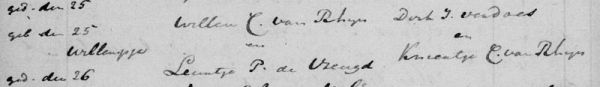 ged. den 25
geb den 25 Willem C. van Rhijn Dirk J. verdoes
Willempje en en
ged. den 26 Leentje P. de Vreugd Kneentje C. van Rhijn